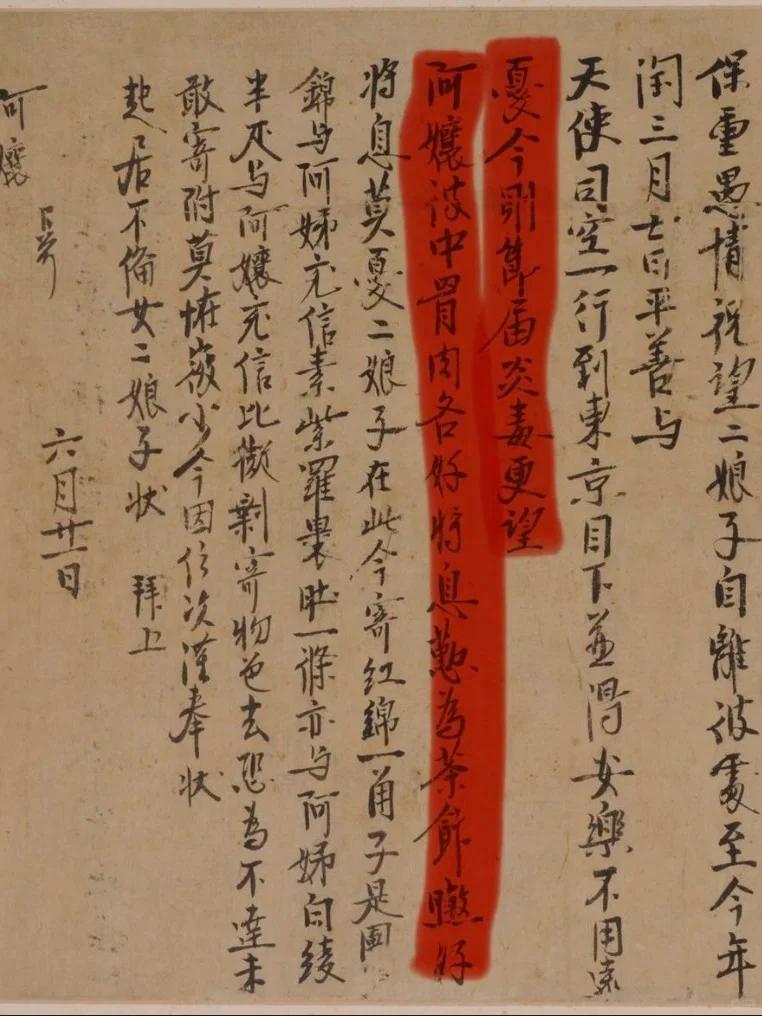 保重愚情祝望二娘子自離彼處至今年
閏三月七日平善与
天使司空一行到東京目下並得安樂不用遠
憂今則節届炎毒更望
阿孃彼中骨肉各好將息勤為茶飰煞好
將息莫憂二娘子在此今寄紅錦一角子是團
錦与阿姊充信素紫羅裹肚一條亦与阿姊白綾
半疋与阿孃充信比擬剩寄物色去恐為不達未
敢寄附莫怪微少今因信次謹奉狀
起居不俻女二娘子狀 拜上
六月廿一日
阿孃